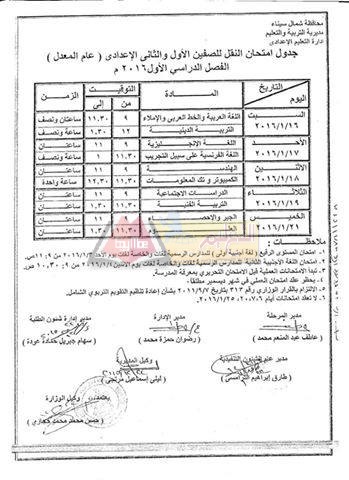 محافظة شمال سيناء
مديرية التربية والتعليم
إدارة التعليم الإعدادى
جدول امتحان النقل للصفين الأول والثانى الإعدادى ( عام المعدل )
الفصل الدراسي الأول ٢٠١٦ م
التاريخ اليوم المادة التوقيت من إلى الزمن
السبت ٢٠١٦/١/١٦ اللغة العربية والخط العربي والإملاء ٩ ١١.٣٠ ساعتان ونصف
التربية الدينية ١٢ ١.٣٠ ساعة ونصف
الأحد ٢٠١٦/١/١٧ اللغة الإنجليزية ٩ ١١ ساعتان
اللغة الفرنسية على سبيل التجريب ١١.٣٠ ١ ساعة ونصف
الاثنين ٢٠١٦/١/١٨ الهندسة ٩ ١١ ساعتان
الكمبيوتر و تك المعلومات ١١.٣٠ ١٢.٣٠ ساعة واحدة
الثلاثاء ٢٠١٦/١/١٩ الدراسات الاجتماعية ٩ ١١ ساعتان
التربية الفنية ١١.٣٠
الخميس ٢٠١٦/١/٢١ الجبر والإحصاء ٩ ١١ ساعتان
ملاحظات :
١. امتحان المستوى الرفيع ( لغة أجنبية أولى ) للمدارس الرسمية لغات والخاصة لغات يوم الأحد ٢٠١٦/١/٣ من ٩ : ١١ص.
٢. امتحان اللغة الأجنبية الثانية للمدارس الرسمية لغات والخاصة لغات يوم
٣. تبدأ الامتحانات العملية قبل الامتحان التحريري بمعرفة المدرسة.
٤. يحظر عقد امتحان العملي في شهر ديسمبر مطلقاً.
٥. الالتزام بالقرار الوزاري رقم ٣١٣ لسنة ٢٠١١/٩/٧ بشأن إعادة تنظيم التقويم التربوي الشامل.
٦. لا تعقد امتحانات أيام
مدير المرحلة
عاطف عبد المنعم محمد
مدير الإدارة
رضوان حمزة محمد
مدير شئون الطلبة
سهام جبريل حمادة عودة
مدير عام الشئون التنفيذية
طارق إبراهيم
وكيل المديرية
ليلى إسماعيل مرتجى
يعتمد
وكيل الوزارة
حسن محمد محمد حجازي